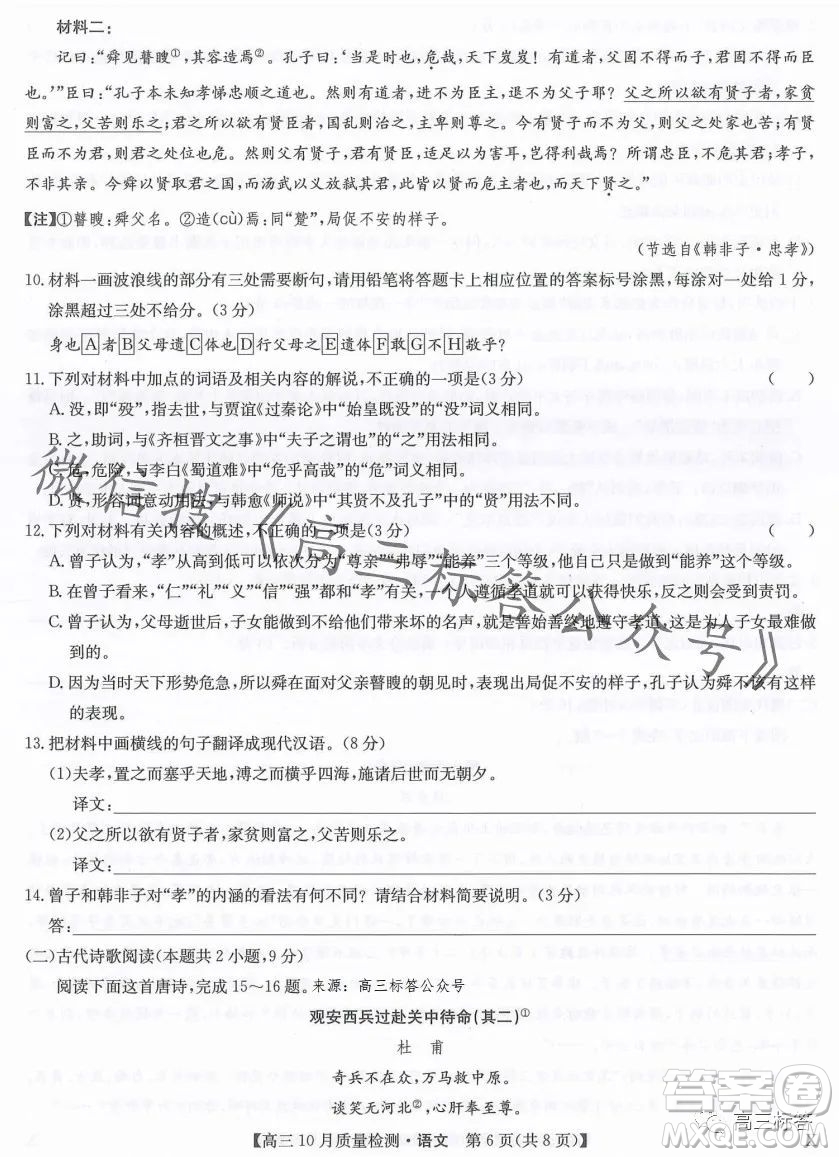 材料二：
记曰：“舜见瞽瞍①，其容造焉②。孔子曰：‘当是时也，危哉，天下岌岌！有道者，父固不得而子，君固不得而臣
也。’”臣曰：“孔子本未知孝悌忠顺之道也。然则有道者，进不为臣主，退不为父子耶？父之所以欲有贤子者，家贫
则富之，父苦则乐之；君之所以欲有贤臣者，国乱则治之，主卑则尊之。今有贤子而不为父，则父之处家也苦；有贤
臣而不为君，则君之处位也危。然则父有贤子，君有贤臣，适足以为害耳，岂得利哉焉？所谓忠臣，不危其君；孝子，
不非其亲。今舜以贤取君之国，而汤武以义放弑其君，此皆以贤而危主者也，而天下贤之。”
【注】①瞽瞍：舜父名。②造(cù)焉：同“蹙”，局促不安的样子。
（节选自《韩非子·忠孝》）
10.材料一画波浪线的部分有三处需要断句，请用铅笔将答题卡上相应位置的答案标号涂黑，每涂对一处给1分，
涂黑超过三处不给分。(3分)
身也A者B父母遗C体也D行父母之E遗体F敢G不H敬乎？
11.下列对材料中加点的词语及相关内容的解说，不正确的一项是(3分) （ ）
A.没，即“殁”，指去世，与贾谊《过秦论》中“始皇既没”的“没”词义相同。
B.之，助词，与《齐桓晋文之事》中“夫子之谓也”的“之”用法相同。
C.危，危险，与李白《蜀道难》中“危乎高哉”的“危”词义相同。
D.贤，形容词意动用法，与韩愈《师说》中“其贤不及孔子”中的“贤”用法不同。
12.下列对材料有关内容的概述，不正确的一项是(3分) （ ）
A.曾子认为，“孝”从高到低可以依次分为“尊亲”“弗辱”“能养”三个等级，他自己只是做到“能养”这个等级。
B.在曾子看来，“孝”与“仁”“礼”“义”“信”“强”都有关系，一个人遵循孝道就快乐，反之则会受到责罚。
C.曾子认为，父母过世后，子女行为谨慎，不给他们带来坏的名声，就是善始善终地遵守孝道，这是为人子女最难做
到的。
D.因为当时天下形势危急，所以舜在面对父亲瞽瞍的朝见时，表现出局促不安的样子，孔子认为舜不该有这样
的表现。
13.把材料中画横线的句子翻译成现代汉语。(8分)
(1)夫孝，置之而塞乎天地，溥之而横乎四海，施诸后世而无朝夕。
译文：
(2)父之所以欲有贤子者，家贫则富之，父苦则乐之。
译文：
14.曾子和韩非子对“孝”的内涵的看法有何不同？请结合材料简要说明。(3分)
答：
(二)古代诗歌阅读(本题共2小题，9分)
阅读下面这首唐诗，完成15～16题。来源：高三标答公众号
观安西兵过赴关中待命(其二)①
杜 甫
奇兵不在众，万马救中原。
谈笑无河北②，心肝奉至尊。
【高三10月质量检测·语文 第6页(共8页)】
X
微信搜《高三标答公众号》
答案圈
高三标答